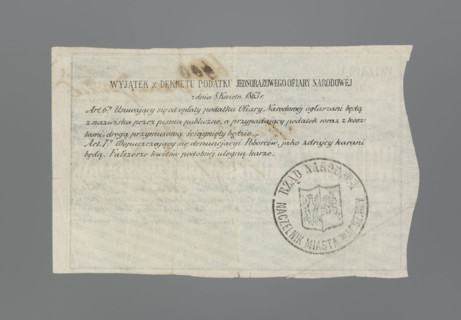 WYJĄTEK z DEKRETU PODATKU JEDNORAZOWEGO OFIARY NARODOWEJ
z dnia 8 Kwietn. 1863 r.
Art. 6º Usuwający się od opłaty podatku Ofiary Narodowej ogłaszani będą
z nazwiska przez pisma publiczne, a przypadający podatek wraz z kosz-
tami drogą przymusową ściągnięty będzie.
Art. 7º Dopuszczający się denuncjacyi Poborców, jako zdrajcy karani
będą. Fałszerze kwitów podobnej ulegną karze.
RZĄD NARODOWY
NACZELNIK MIASTA WARSZAWA